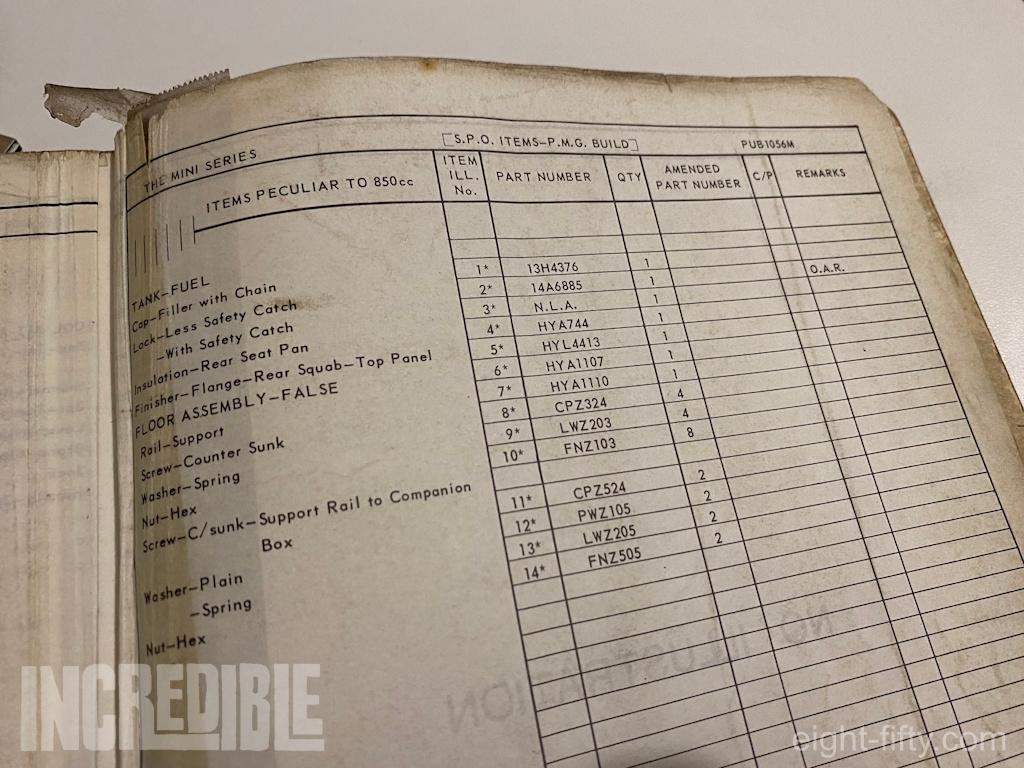 THE MINI SERIES
[S.P.O. ITEMS–P.M.G. BUILD]
PUB1056M
ITEMS PECULIAR TO 850cc
ITEM ILL. No.
PART NUMBER
QTY
AMENDED PART NUMBER
C/P
REMARKS
TANK–FUEL
Cap–Filler with Chain
Lock–Less Safety Catch
–With Safety Catch
Insulation–Rear Seat Pan
Finisher–Flange–Rear Squab–Top Panel
FLOOR ASSEMBLY–FALSE
Rail–Support
Screw–Counter Sunk
Washer–Spring
Nut–Hex
Screw–C/sunk–Support Rail to Companion
Box
Washer–Plain
–Spring
Nut–Hex
1* 13H4376 1
2* 14A6885 1 O.A.R.
3* N.L.A. 1
4* HYA744 1
5* HYL4413 1
6* HYA1107 1
7* HYA1110 1
8* CPZ324 4
9* LWZ203 4
10* FNZ103 8
11* CPZ524 2
12* PWZ105 2
13* LWZ205 2
14* FNZ505 2
NO ILLUSTRATION
INCREDIBLE
eight-fifty.com